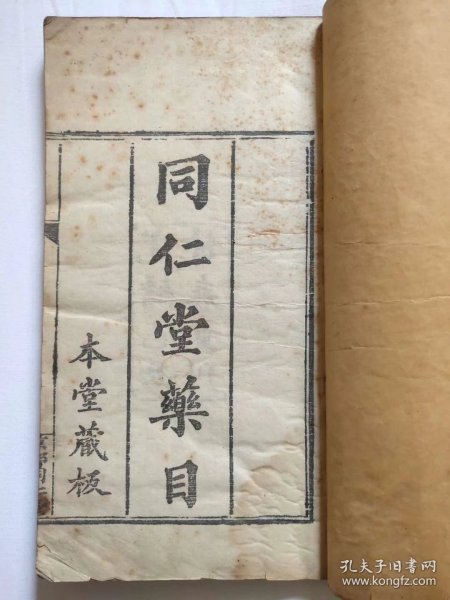 同仁堂藥目
本堂藏板
孔夫子旧书网
www.kongfz.com